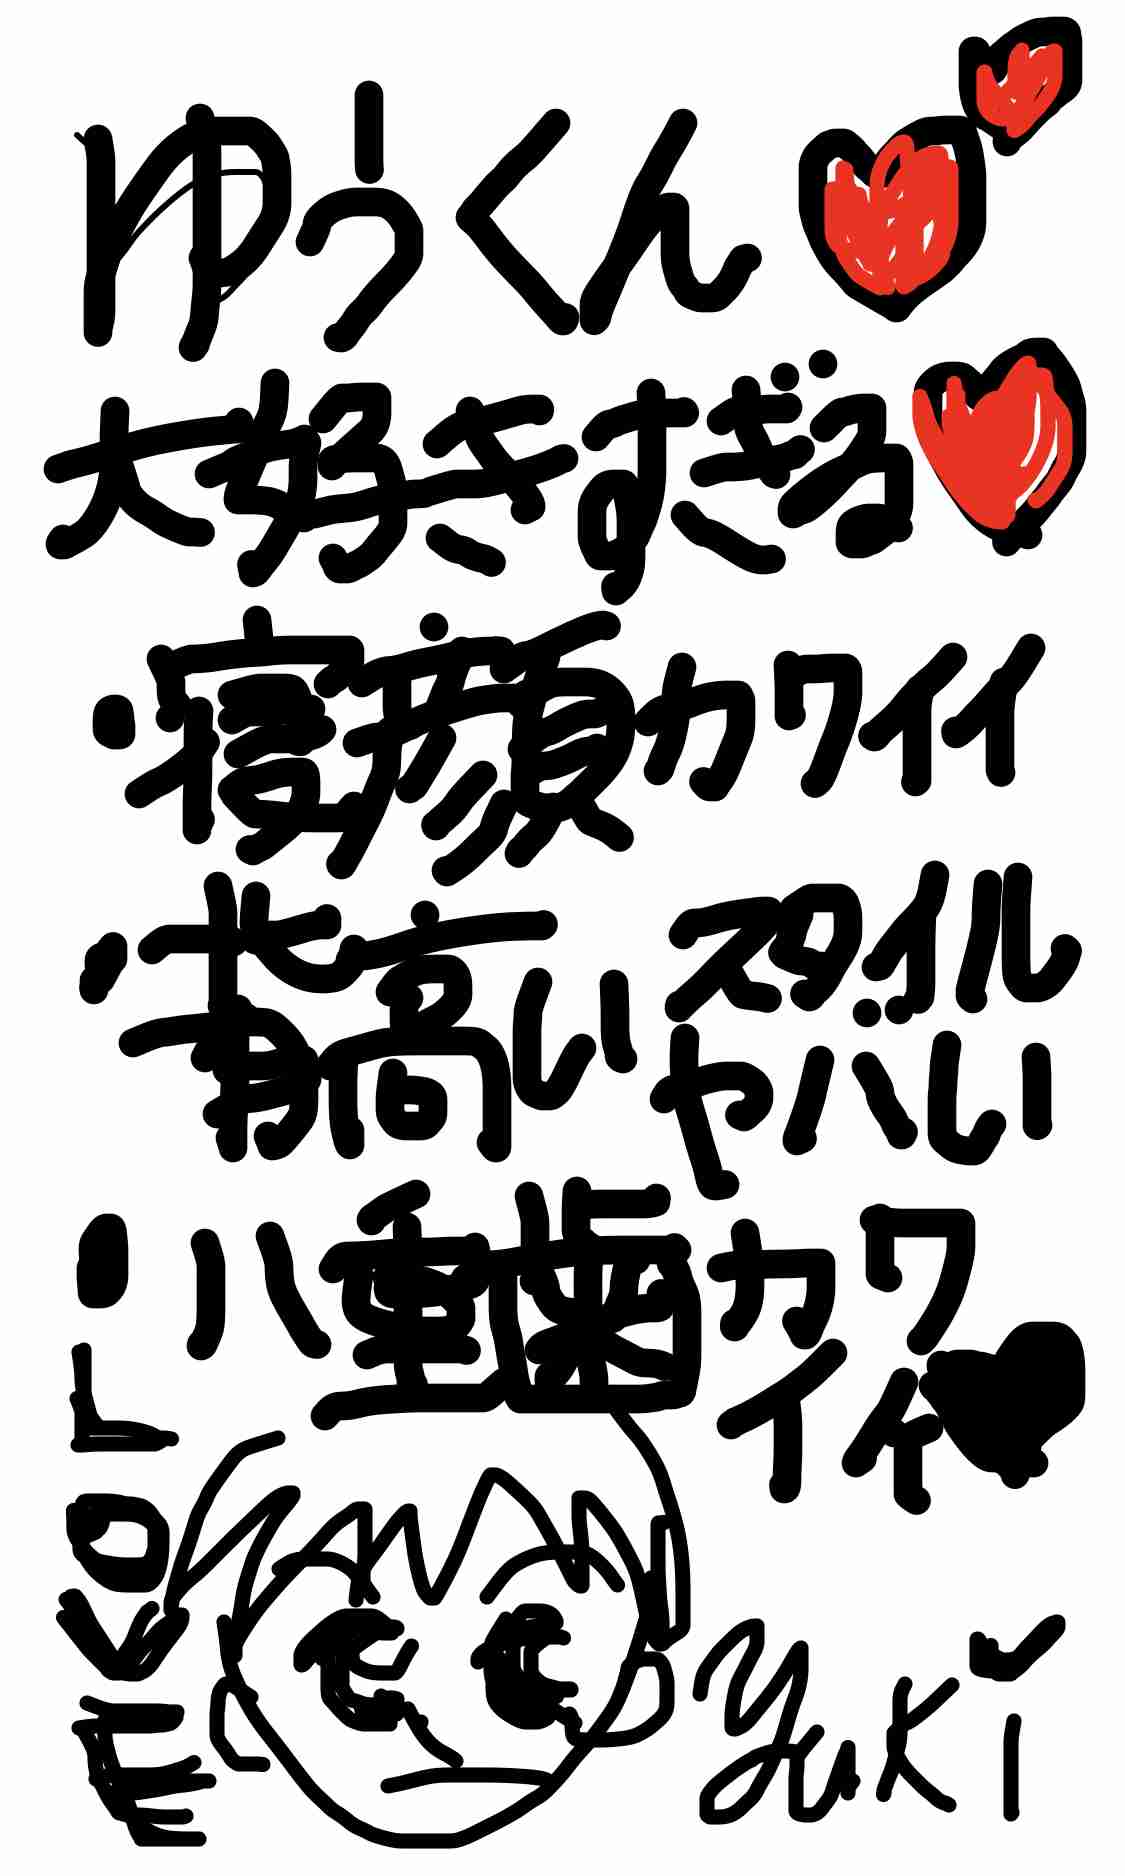 ゆうくん
大好きすぎる
・寝顔カワイイ
・背高い スタイル
ヤバい
・八重歯カワ
イイ
LOVE
yuki